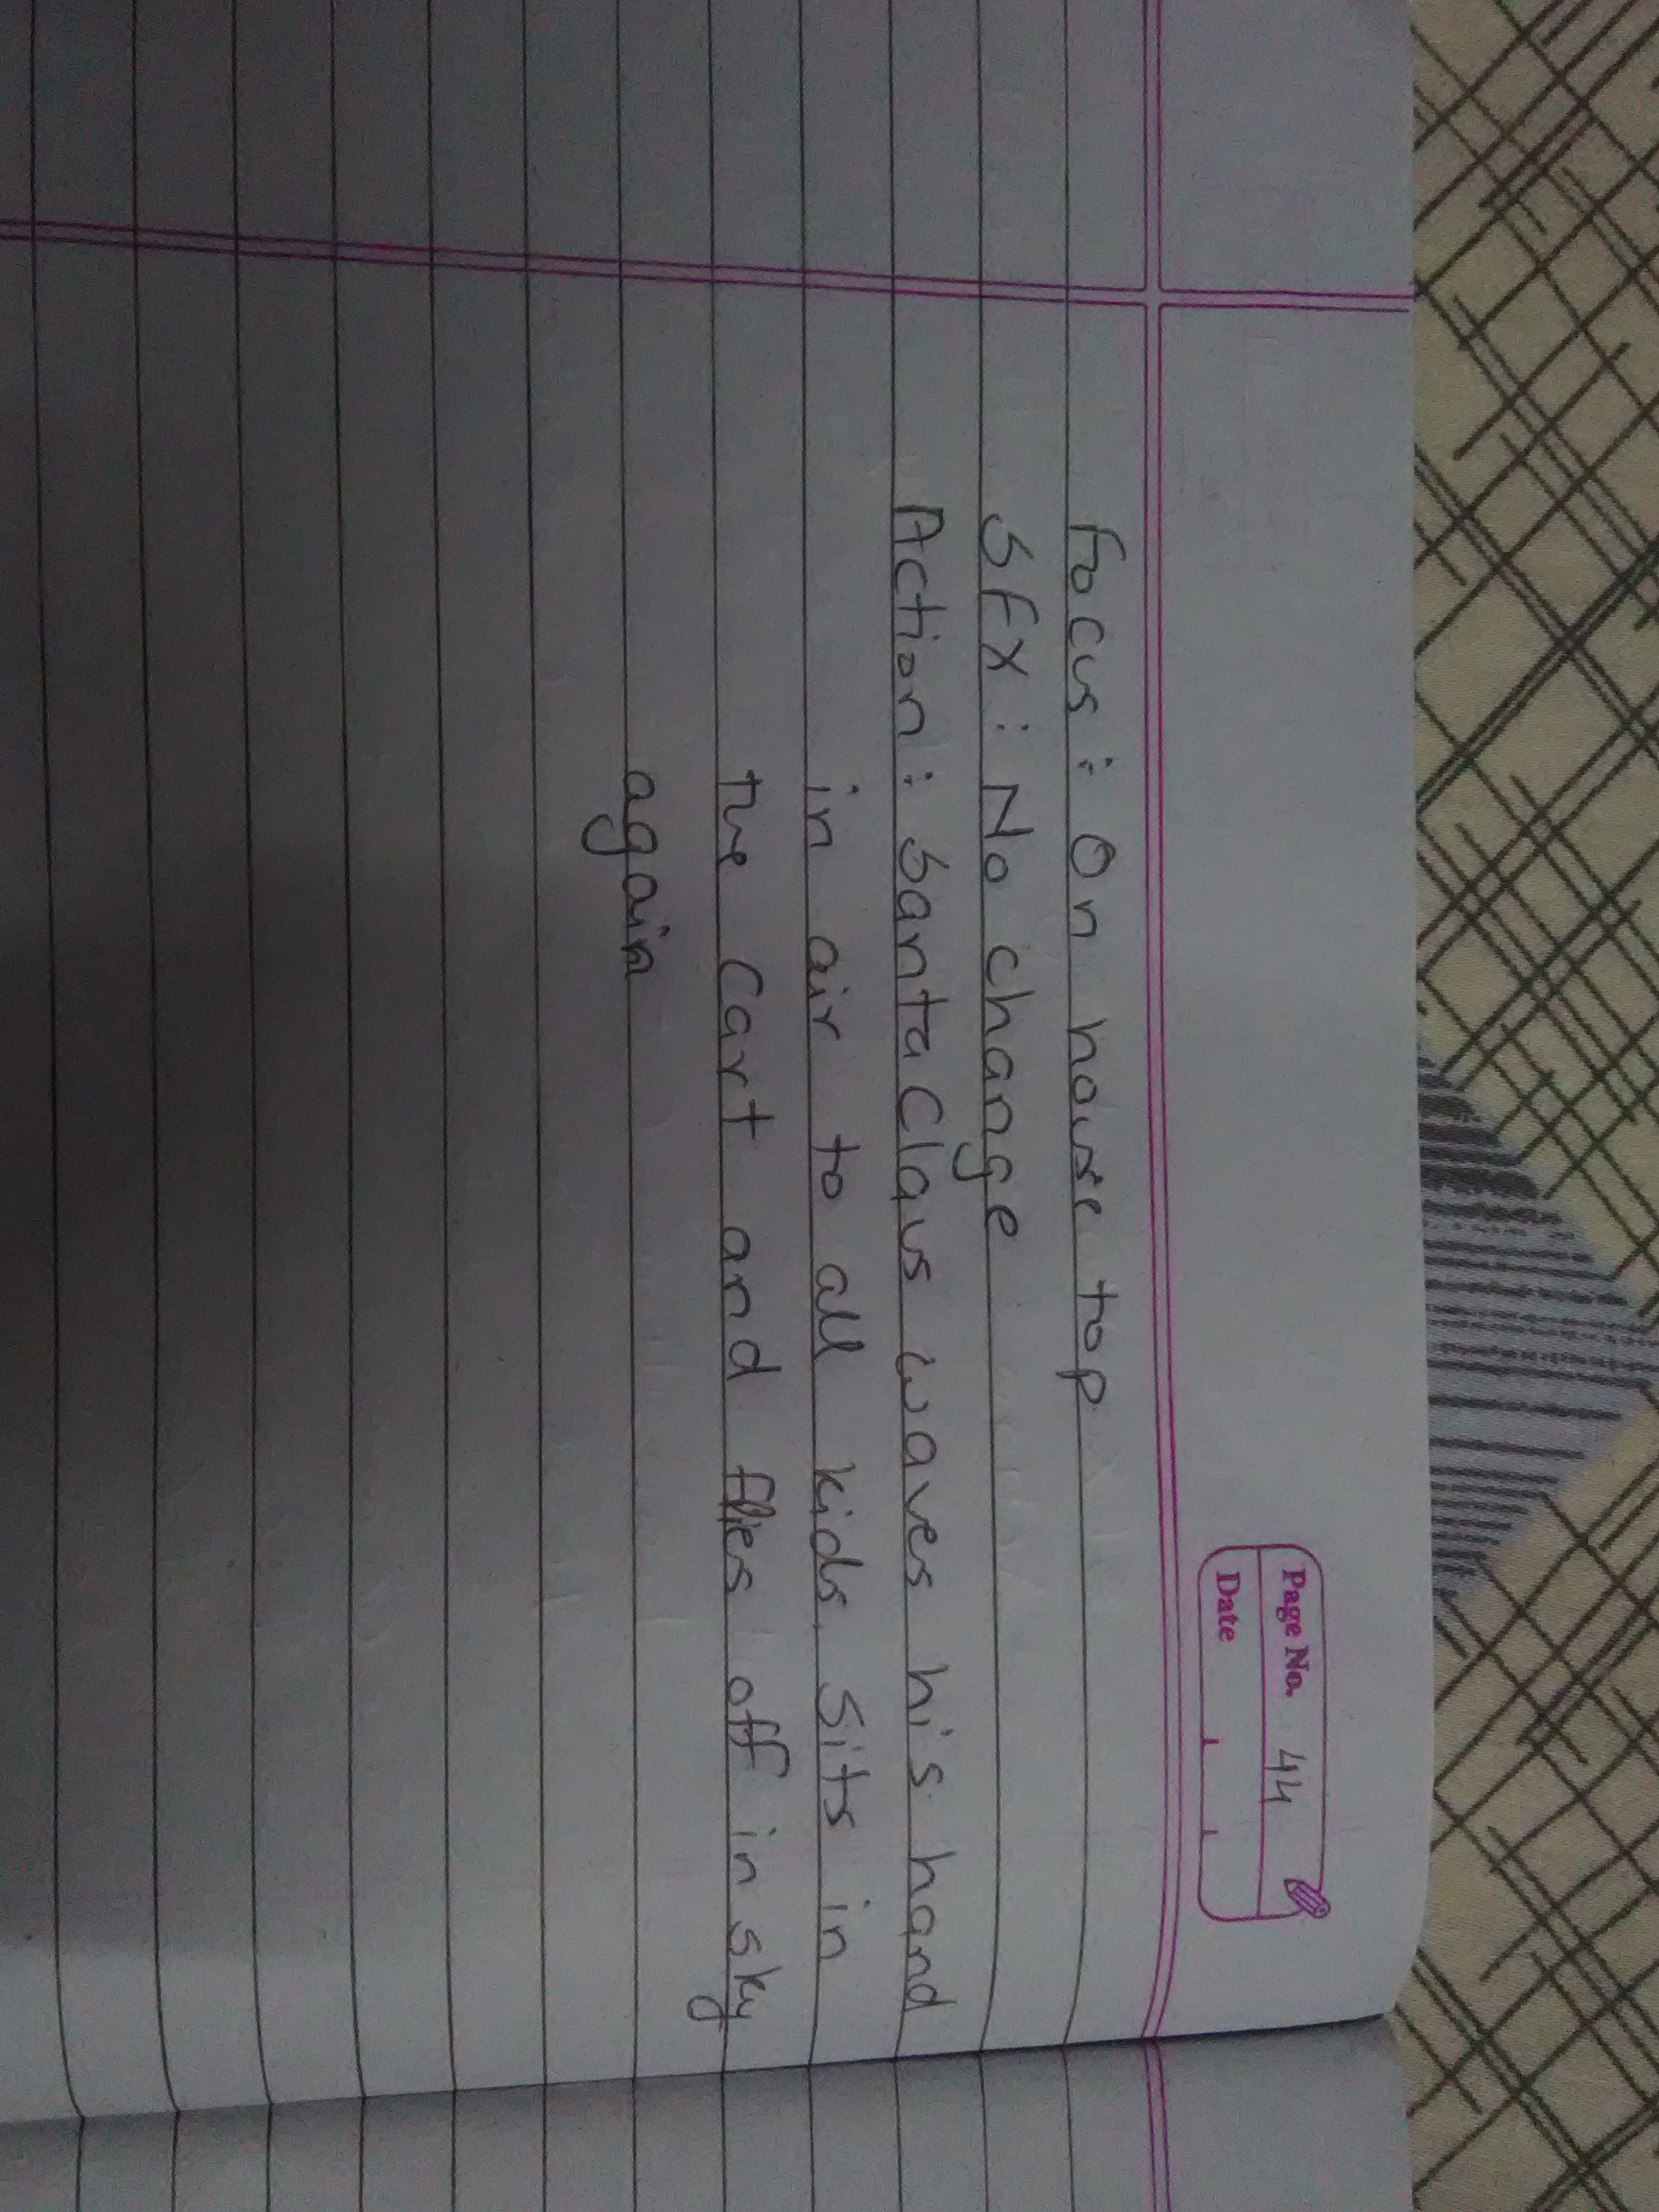 Page No. 44
Date
Focus : On house top
SFX : No change
Action : Santa Claus waves his hand
in air to all kids, sits in
the Cart and flies off in sky
again